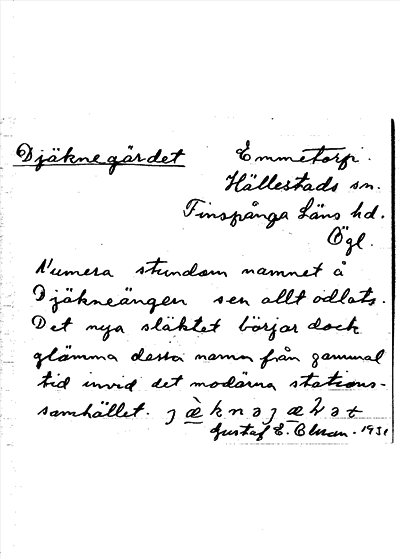 Djäknegärdet Emmetorp.
Hällestads sn.
Finspånga Läns hd.
Ögl.
Numera stundom namnet å
Djäkneängen sen allt odlats.
Det nya släktet börjar dock
glämma dessa namn från gammal
tid invid det modärna stations-
samhället.
Gustaf E. 1931